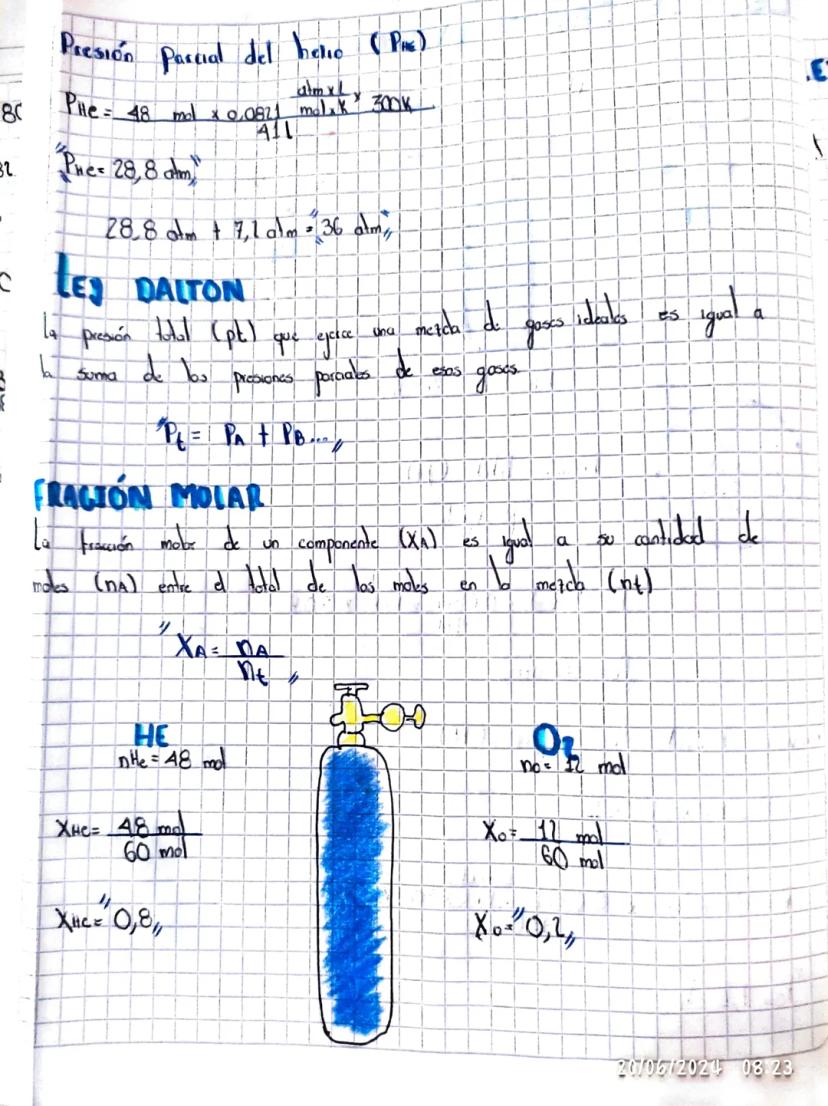 Presión Parcial del helio (PHe)
PHe = 48 mol x 0,0821 atm x L / mol x K x 300K
41L
"PHe = 28,8 atm"
28,8 atm + 7,2 atm = "36 atm"
LEY DALTON
La presión total (pt) que ejerce una mezcla de gases ideales es igual a
la suma de las presiones parciales de esos gases.
"Pt = PA + PB..."
FRACIÓN MOLAR
La fracción molar de un componente (XA) es igual a su cantidad de
moles (nA) entre el total de los moles en la mezcla (nt)
"XA = nA
nt"
HE
O2
nHe = 48 mol
no = 12 mol
XHe = 48 mol
60 mol
Xo = 12 mol
60 mol
XHe = "0,8"
Xo = "0,2"
20/06/2024 08:23